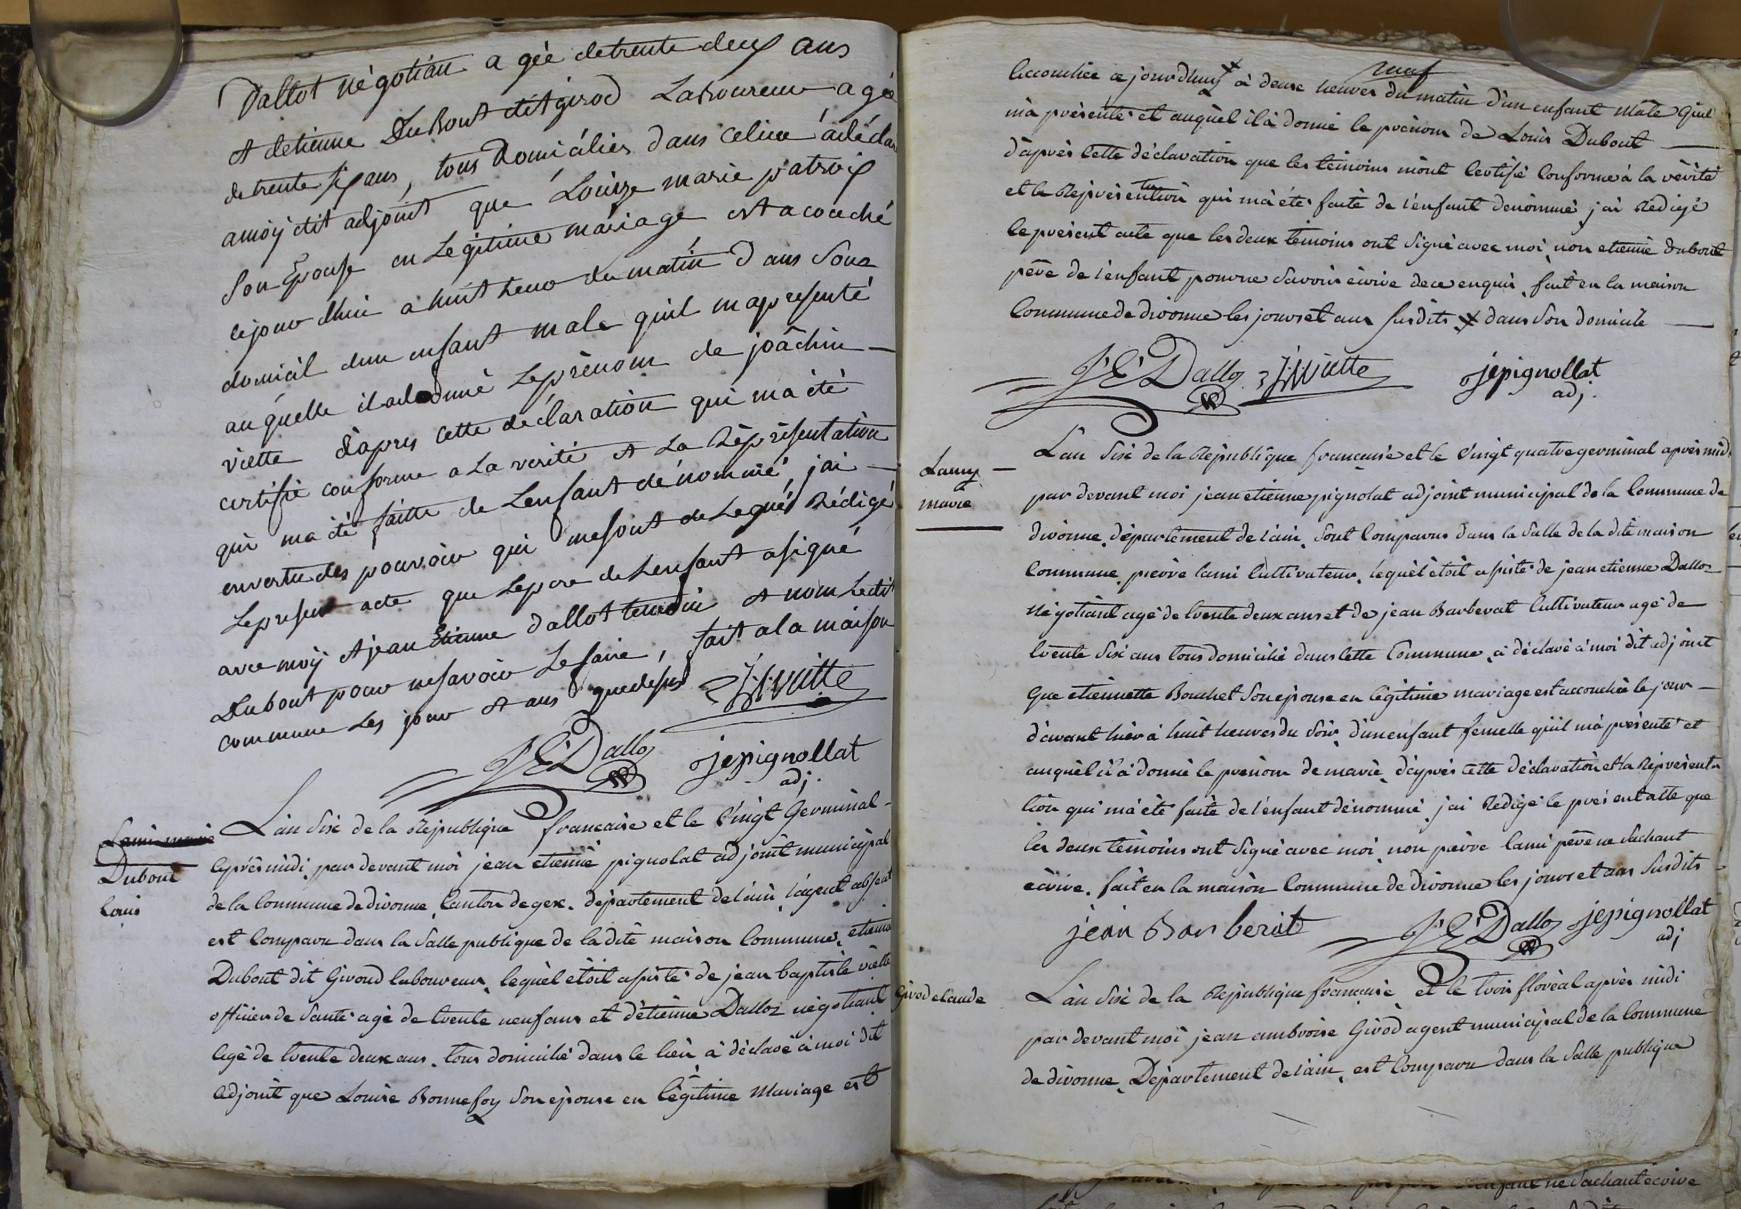 Dallot négotian a gée detrente deux ans
et detienne Dubout dit girod Laboureur agé
detrente six ans, tous Domiciliés dans celieu á décla
amoÿ dit adjoint que Louize marie patroix
Son Épouse en Legitime mariage est acouché
cejour dhui a huit heur du matin dans Son
domicil dun enfant male quil mapresenté
auquelle il adonné Leprénom de joâchin —
viette d'apres cette déclaration qui ma été
certifié conforme a La verité et La Réprésentation
qui ma été faitte de Lenfant dénommé, jai —
envertu des pouvoir qui mesont delegués Rédigé
Lepresent acte que Lepere deLenfant asigné
avec moÿ et jean Etienne dallot temoin et nom Ledit
Dubout pour nesavoir Lefaire, fait ala maison
commune Les jour et ans quedesus J Bviette
J E Dalloz jepignollat
adj.
Lami marie
Dubout
louis
L'an Six de la République francaise et le vingt Germinal -
après midi par devant moi jean etienne pignolat adjoint municipal
de la Commune de divonne, Canton de gex. département de l'ain, l'agent absent
est Comparu dans la Salle publique de la dite maison Commune, etienne
Dubout dit Girod laboureur, lequel étoit assisté de jean baptiste viette
officier de Santé agé de trente neuf ans et d'étienne Dalloz négotiant
agé de trente deux ans. tous domicilié dans le lieu à déclaré à moi dit
adjoint que Louise Bonnefoy Son épouse en légitime Mariage est
accouchée à jourdhuy ⌗ à deux heures du matin d'un enfant Mâle quil
neuf
m'a présenté et auquel il à donné le prénom de Louis Dubout —
d'après cette déclaration que les témoins m'ont Certifié Conforme à la vérité
et la Représentation qui m'a été faite de l'enfant dénommé j'ai Rédigé
le présent acte que les deux témoins ont Signé avec moi, non etienne dubout
père de l'enfant pour ne Savoir écrire de ce enquis, fait en la maison
Commune de divonne les jour et an Susdits. ⌗ dans Son domicile —
J E Dalloz J Bviette jepignollat
adj.
Lamy
marie
L'an Six de la République française et le vingt quatre germinal après midi
par devant moi jean etienne pignolat adjoint municipal de la Commune de
divonne, département de l'ain, Sont Comparus dans la Salle de la dite maison
Commune, pierre lami Cultivateur, lequel étoit assisté de jean etienne Dalloz
Négotiant agé de trente deux ans et de jean Barberat Cultivateur agé de
trente Six ans tous domicilié dans cette Commune, à déclaré à moi dit adjoint
Que etiennette Bouchet Son épouse en légitime mariage est accouchée le jour —
d'avant hier à huit heures du Soir, d'un enfant femelle qu'il m'a présenté et
auquel il à donné le prénom de marie, d'après cette déclaration et la Représenta
tion qui m'a été faite de l'enfant dénommé j'ai Rédigé le présent acte que
les deux témoins ont Signé avec moi, non pierre lami père ne Sachant
écrire. fait en la maison Commune de divonne les jours et ans Susdits -
jean Barberat J E Dalloz jepignollat
adj
Girod claude
L'an Six de la République française, et le trois floréal après midi
par devant moi jean ambroise Girod agent municipal de la Commune
de divonne, Département de l'ain, est Comparu dans la Salle publique
ne Sachant écrire